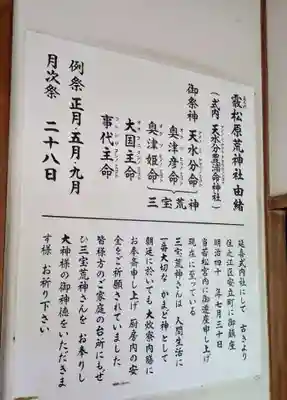 霰松原荒神社 由緒
(式内 天水分豊浦命神社)
御祭神 天水分命
奥津彦命
奥津姫命
三宝荒神
大国主命
事代主命
例祭 正月・五月・九月
月次祭 二十八日
延喜式内社にして 古きより
住之江区安立町に御鎮座
明治四十年七月三十日
当若松宮内に御遷座申し上げ
現在に至っている
三宝荒神さんは 人間生活に
一番大切な かまど神として
朝廷に於いても 大炊祭内膳に
お奉斎申し上げ 厨房内の安
全をご祈願されていました
皆様方のご家庭の台所にもぜ
ひ三宝荒神さんを お奉りし
大神様の御神徳をいただきま
す様 お祈り下さい